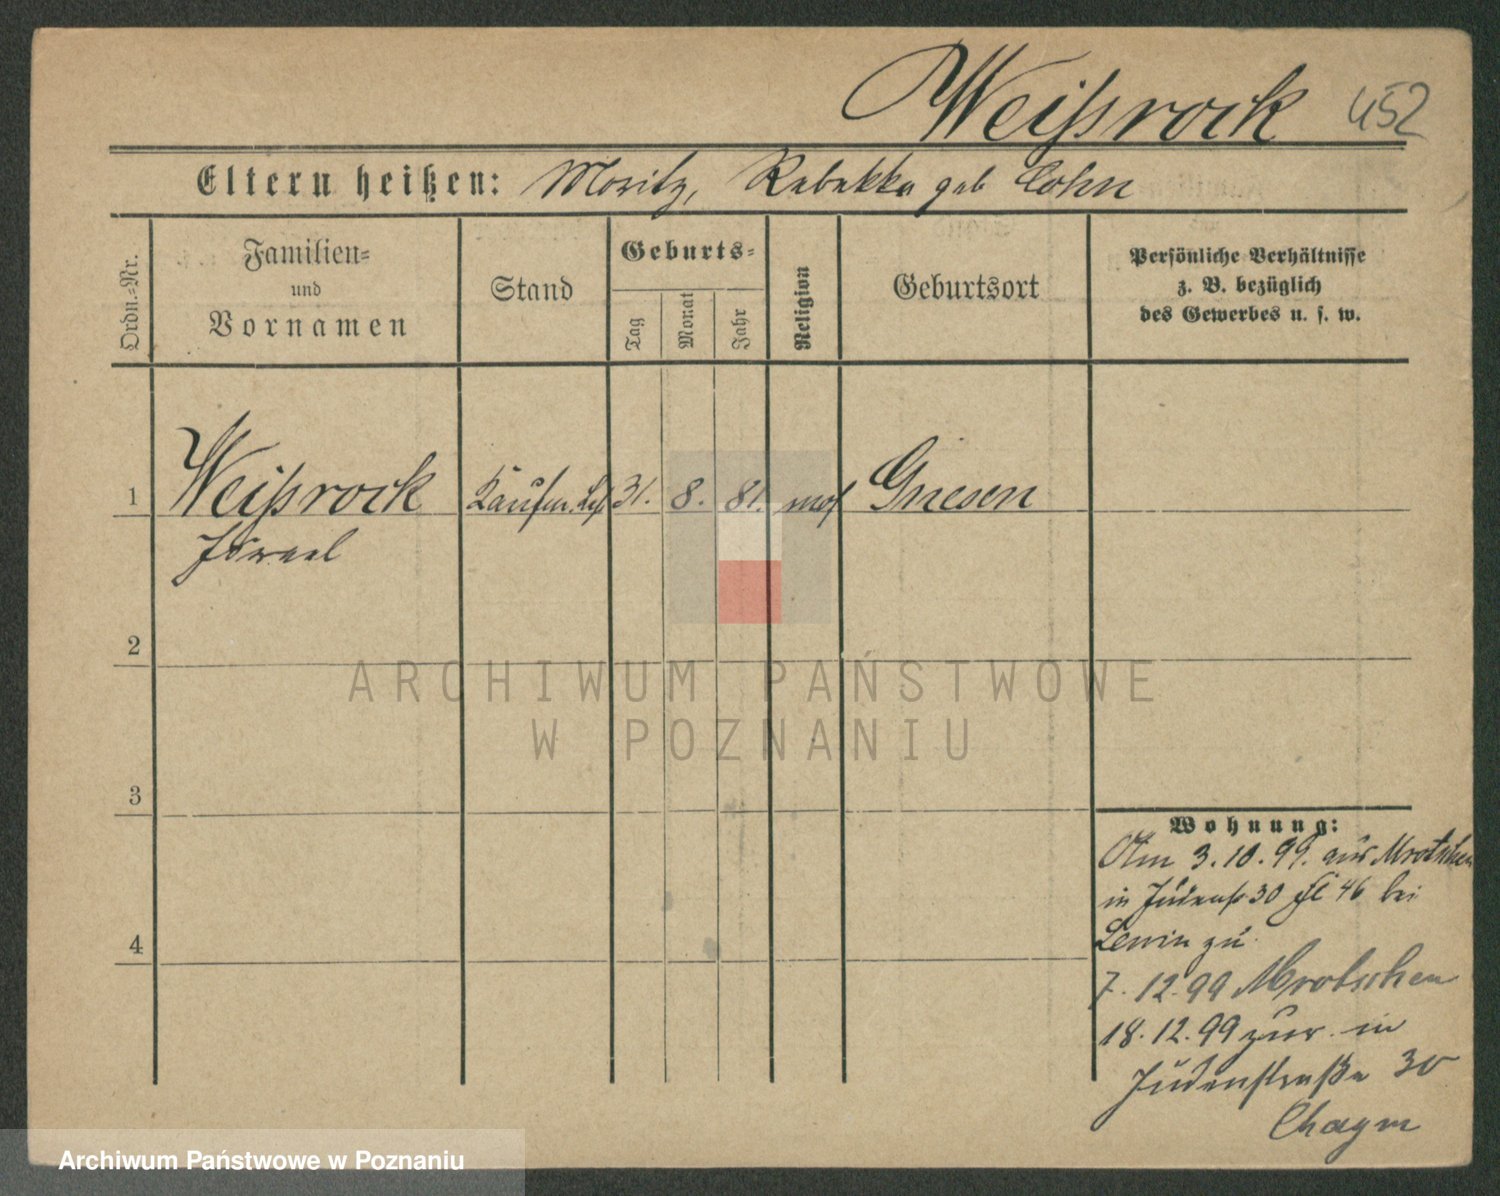 Weißrock 452
Eltern heißen: Moritz, Rebekka geb Cohn
Ordn.-Nr.
Familien-
und
Vornamen
Stand
Geburts-
Tag
Monat
Jahr
Religion
Geburtsort
Persönliche Verhältnisse
z. B. bezüglich
des Gewerbes u. s. w.
1 Weißrock Kaufm. 31. 8. 81. mos Gnesen
Israel
2
3
4
ARCHIWUM PAŃSTWOWE
W POZNANIU
Wohnung:
Am 3.10.99. aus Mrotschen
in Judenstr 30 46 bei
Lewin zu
7.12.99 Mrotschen
18.12.99 zur. in
Judenstraße 30
Archiwum Państwowe w Poznaniu